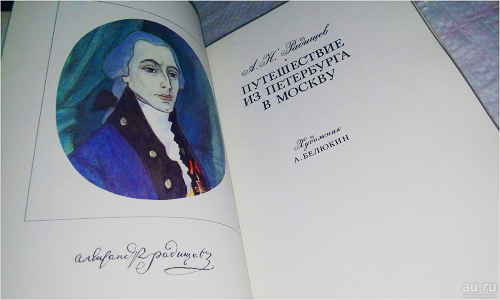 А. Н. Радищев
ПУТЕШЕСТВИЕ
ИЗ ПЕТЕРБУРГА
В МОСКВУ
Художник
А. БЕЛЮКИН
александр радищевъ
au.ru